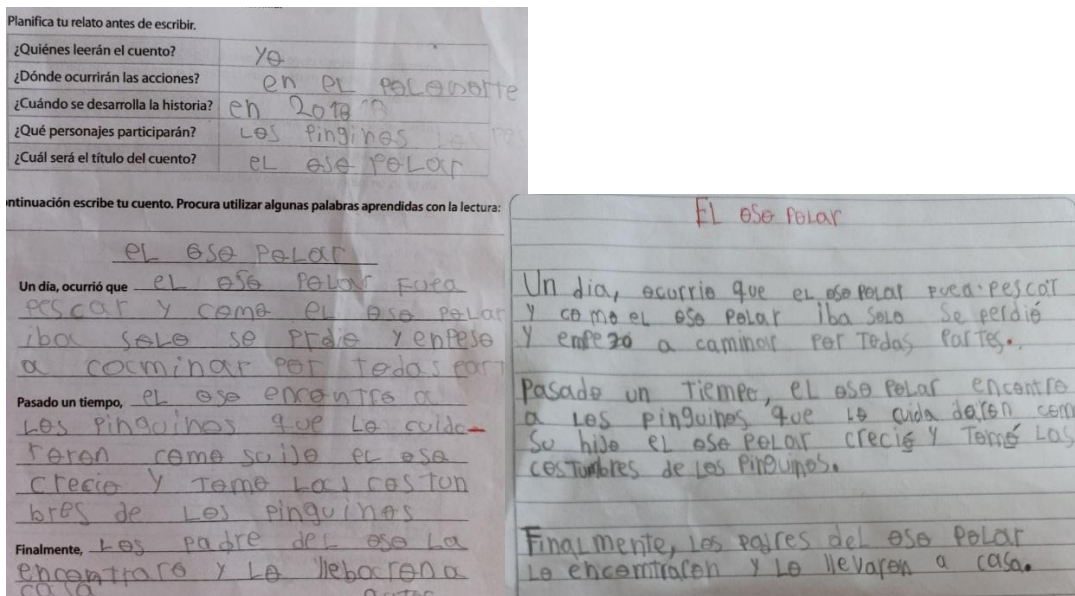 Planifica tu relato antes de escribir.
¿Quiénes leerán el cuento? yo
¿Dónde ocurrirán las acciones? en el polonorte
¿Cuándo se desarrolla la historia? en 2018
¿Qué personajes participarán? Los Pinginos
¿Cuál será el título del cuento? el oso polar
ntinuación escribe tu cuento. Procura utilizar algunas palabras aprendidas con la lectura:
el oso Polar
Un día, ocurrió que el oso Polar Fuea
pescar y como el oso Polar
iba solo se prdio y enpeso
a cocminar por todas part
Pasado un tiempo, el oso encontro a
Los Pinguinos que Lo cuida-
roron como suijo el oso
crecio y Tomo Las costun
bres de Los Pinguinos
Finalmente, Los padre del oso La
encontraro y Lo llebarona
casa
El oso Polar
Un dia, ocurrio que el oso polar fuea pescar
y como el oso Polar iba solo se perdió
y empezo a caminar por Todas Partes.
Pasado un Tiempo, el oso Polar encontro
a Los pinguinos que Lo cuida daron com
su hijo el oso Polar creció y Tomó Las
costumbres de Los Pinguinos.
Finalmente, Los padres del oso Polar
Lo encomtraron y Lo llevaron a casa.